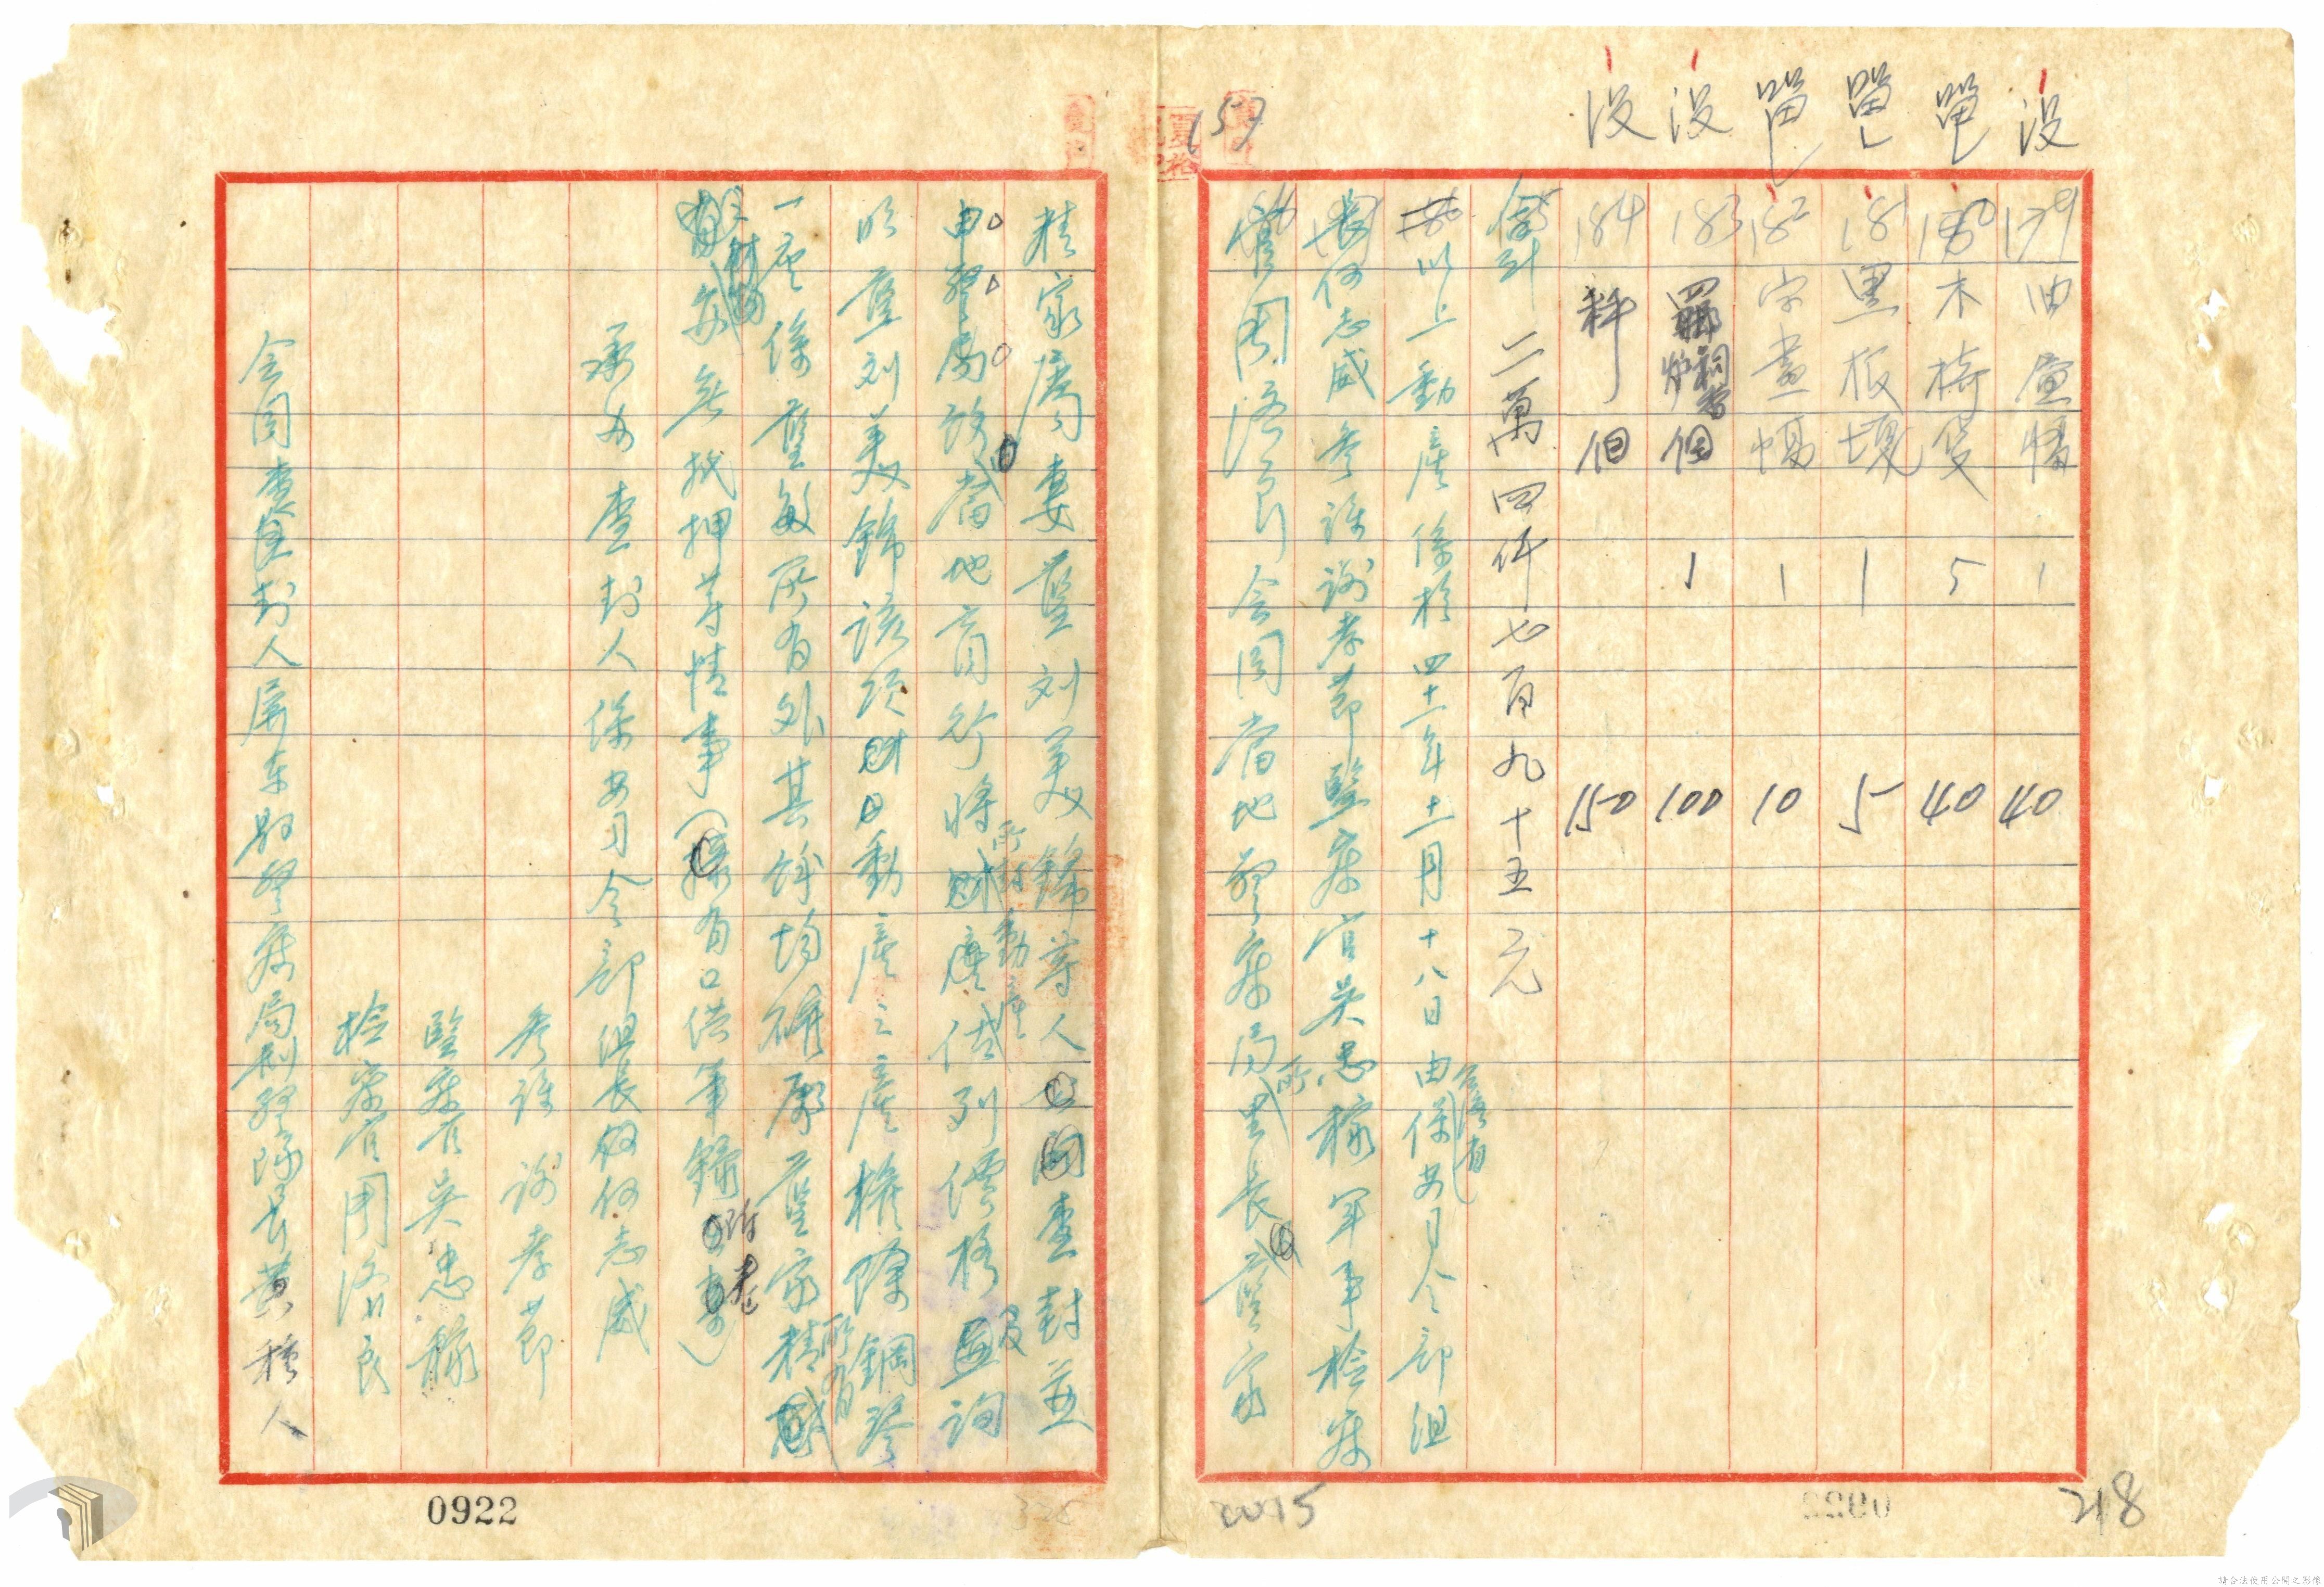 157
没
留
留
留
没
没
179 油画 幅 1 40
180 木椅 隻 5 40
181 黑板 塊 1 5
182 字畫 幅 1 10
183 爐 個 1 100
184 個 150
合計 二萬四仟七百九十五元
以上動產係於四十一年十一月十八日由保安司令部組
台灣省
長何志威參謀謝孝節監察官吳忠稼軍事檢察
官周濟良會同當地警察局里長藍家
所
精家屬妻藍刘美錦等人查封並
申警局當地商行將財產估列價格及詢
所封動產
明藍刘美錦該項動產之產權除鋼琴
一座係藍敏所有外其餘均確屬藍家精
所有
無抵押等情事(據有口供筆錄附卷)
財物
承办查封人保安司令部組長何志威
參謀謝孝節
監察官吳忠稼
檢察官周濟良
會同查封人屏东縣警察局刑警隊長黃種人
0922
2015
218
請合法使用公開之影像